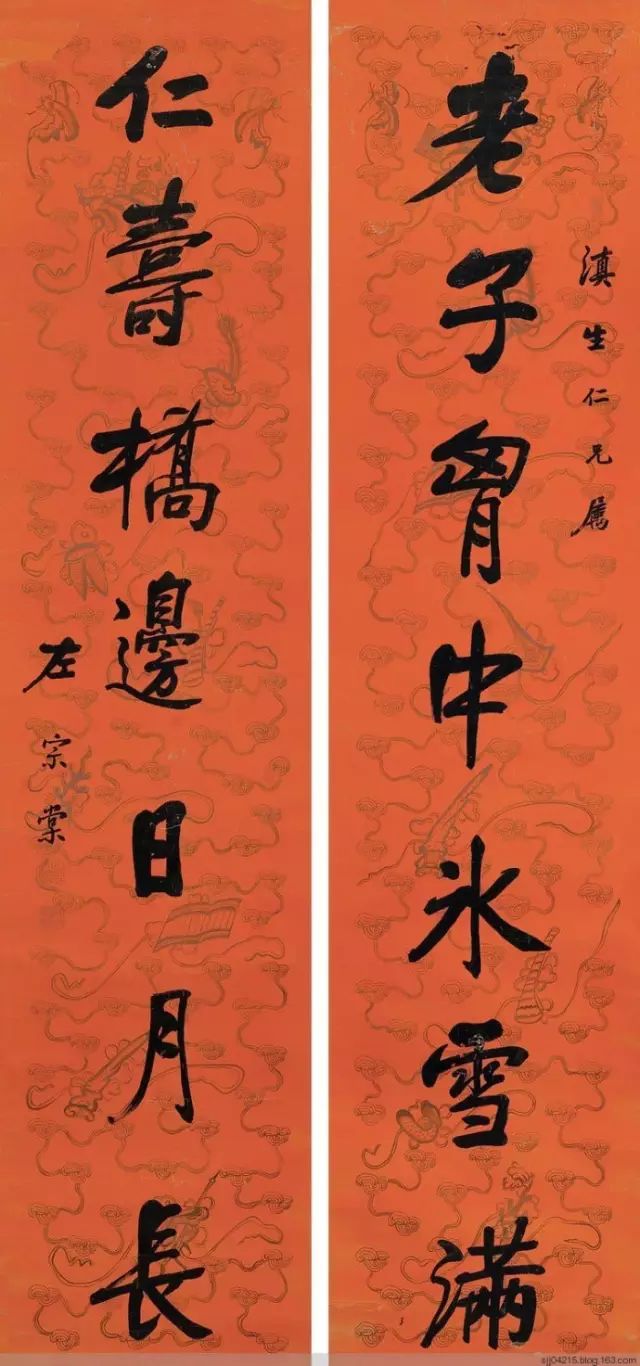 滇生仁兄属
老子胷中冰雪滿
仁壽橋邊日月長
左宗棠
sjj04215.blog.163.com